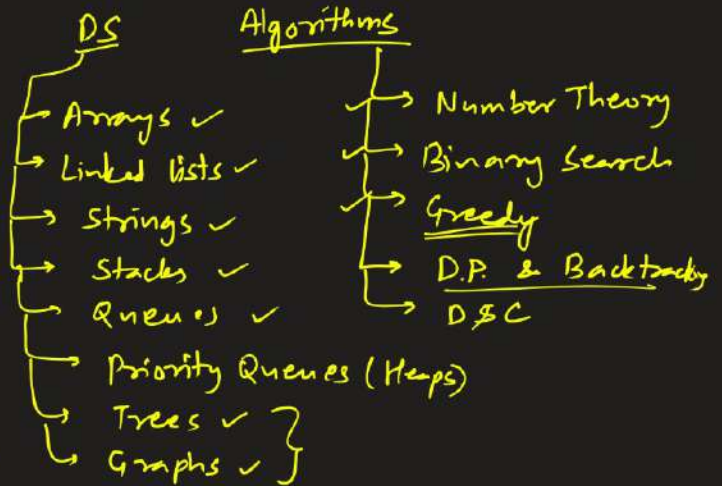 DS
Arrays ✓
Linked lists ✓
Strings ✓
Stacks ✓
Queues ✓
Priority Queues (Heaps)
Trees ✓
Graphs ✓
Algorithms
✓ Number Theory
✓ Binary Search
✓ Greedy
D.P. & Backtracking
D&C